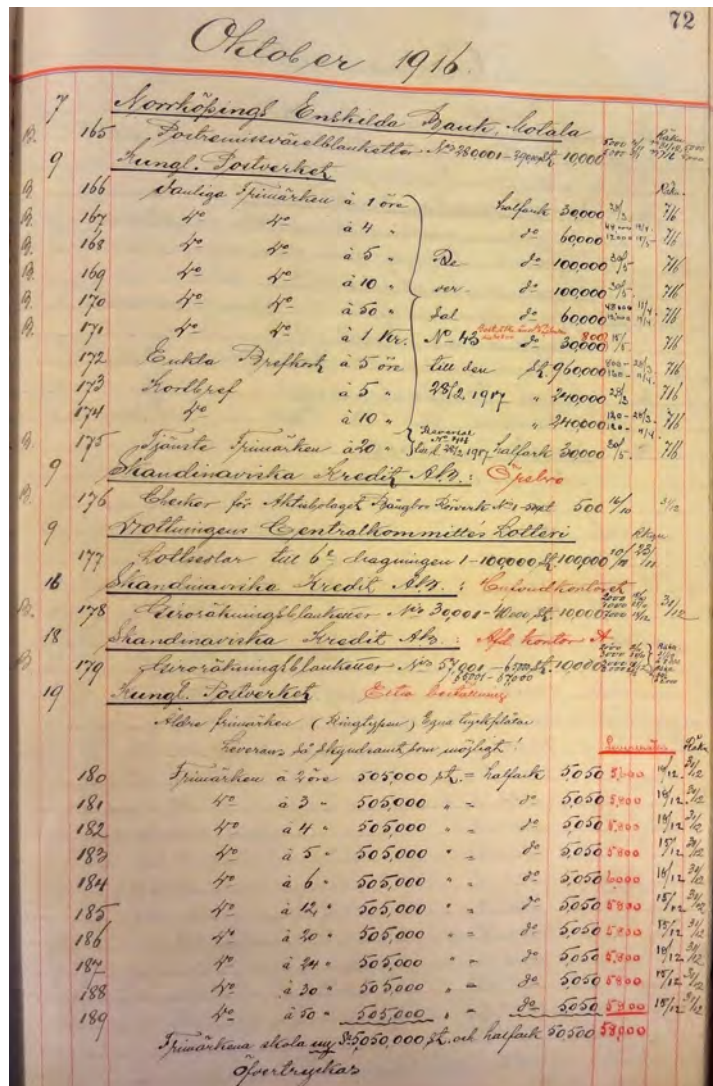 72
Oktober 1916.
7 Norrköpings Enskilda Bank, Motala
B. 165 Postremissväxelblanketter No 280001-290000 St. 10,000
9 Kungl. Postverket
B. 166 Vanliga Frimärken à 1 öre halfark 30,000 7/6
B. 167 do do à 4 " do 60,000 7/6
B. 168 do do à 5 " Re do 100,000 30/5 7/6
B. 169 do do à 10 " ver do 100,000 30/5 7/6
B. 170 do do à 50 " sal do 60,000 7/6
B. 171 do do à 1 Kr. No 43 do 30,000 800 15/5 7/6
172 Enkla Brefkort à 5 öre till den St. 960,000 7/6
173 Kortbref à 5 " 28/2, 1917 " 240,000 28/3 7/6
174 do à 10 " " 240,000 7/6
B. 175 Tjänste Frimärken à 20 " halfark 30,000 30/5 7/6
9 Skandinaviska Kredit Ab.: Örebro
B. 176 Checker för Aktiebolaget No 1-500 St 500 16/10 31/12
9 Drottningens Centralkommittés Lotteri
177 Lottsedlar till 6e dragningen 1-100,000 St. 100,000
16 Skandinaviska Kredit Ab.:
B. 178 Giroräkningsblanketter No 30,001-40,000 St. 10,000 31/12
18 Skandinaviska Kredit Ab.: Afd. Kontor A.
B 179 Giroräkningsblanketter No 57,001 - St. 10,000
66001 - 67,000
19 Kungl. Postverket Extra beställning
Äldre frimärken (Ringtypen) Egna tryckplåtar
Leverans så skyndsamt som möjligt!
180 Frimärken à 2 öre 505,000 st. = halfark 5,050 18/12 31/12
181 do à 3 " 505,000 " = do 5,050 5,800 18/12 31/12
182 do à 4 " 505,000 " = do 5,050 5,800 18/12 31/12
183 do à 5 " 505,000 " = do 5,050 5,800 15/12 31/12
184 do à 6 " 505,000 " = do 5,050 6,000 18/12 31/12
185 do à 12 " 505,000 " = do 5,050 5,800 15/12 31/12
186 do à 20 " 505,000 " = do 5,050 5,800 15/12 31/12
187 do à 24 " 505,000 " = do 5,050 5,800 18/12 31/12
188 do à 30 " 505,000 " = do 5,050 5,800 15/12 31/12
189 do à 50 " 505,000 " = do 5,050 5,800 15/12 31/12
Frimärkena skola 5,050,000 St. och halfark 50,500 58,000
öfvertryckas